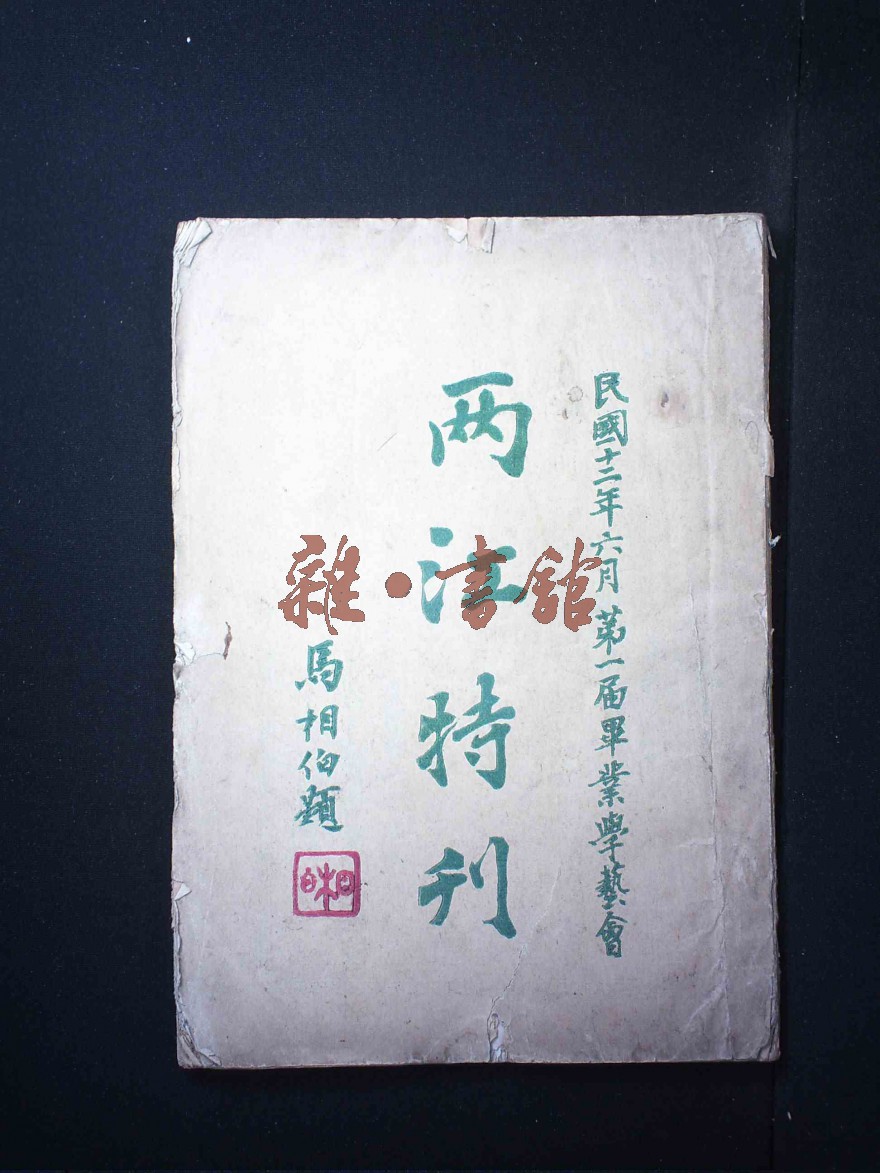 民國十二年六月苐一届畢業學藝會
两江特刊
馬相伯題
相伯
雜·書館